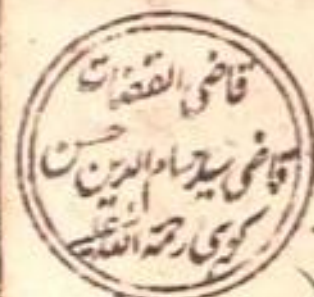 قاضی القضات
قاضی سید حسام الدین حسن
رحمۃ اللہ علیہ